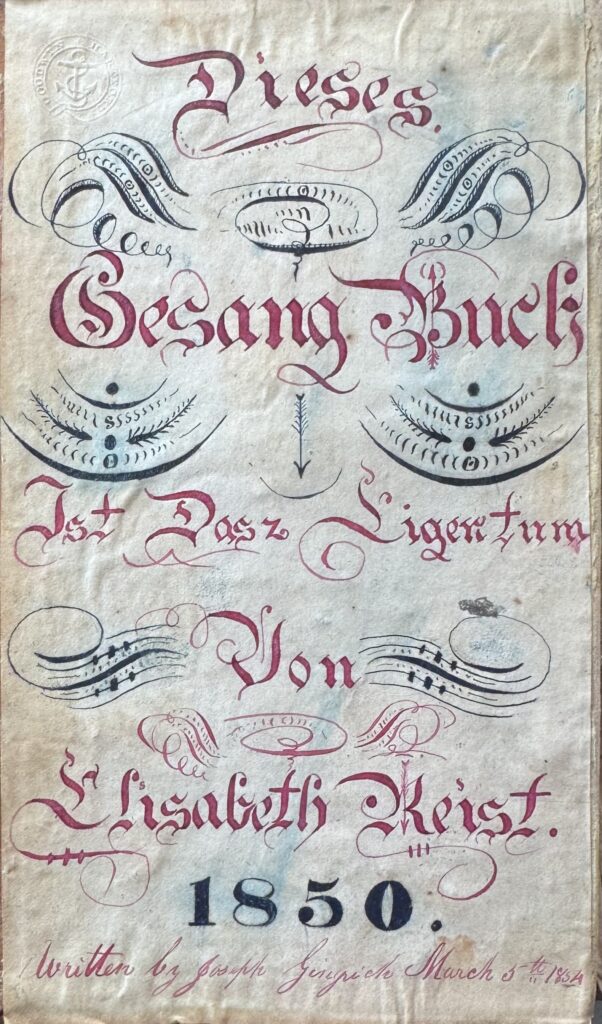 Dieses.
Gesang Buch
Ist Dasz Eigentum
Von
Elisabeth Reist.
1850.
Written by Joseph Gingrich March 5th 1854